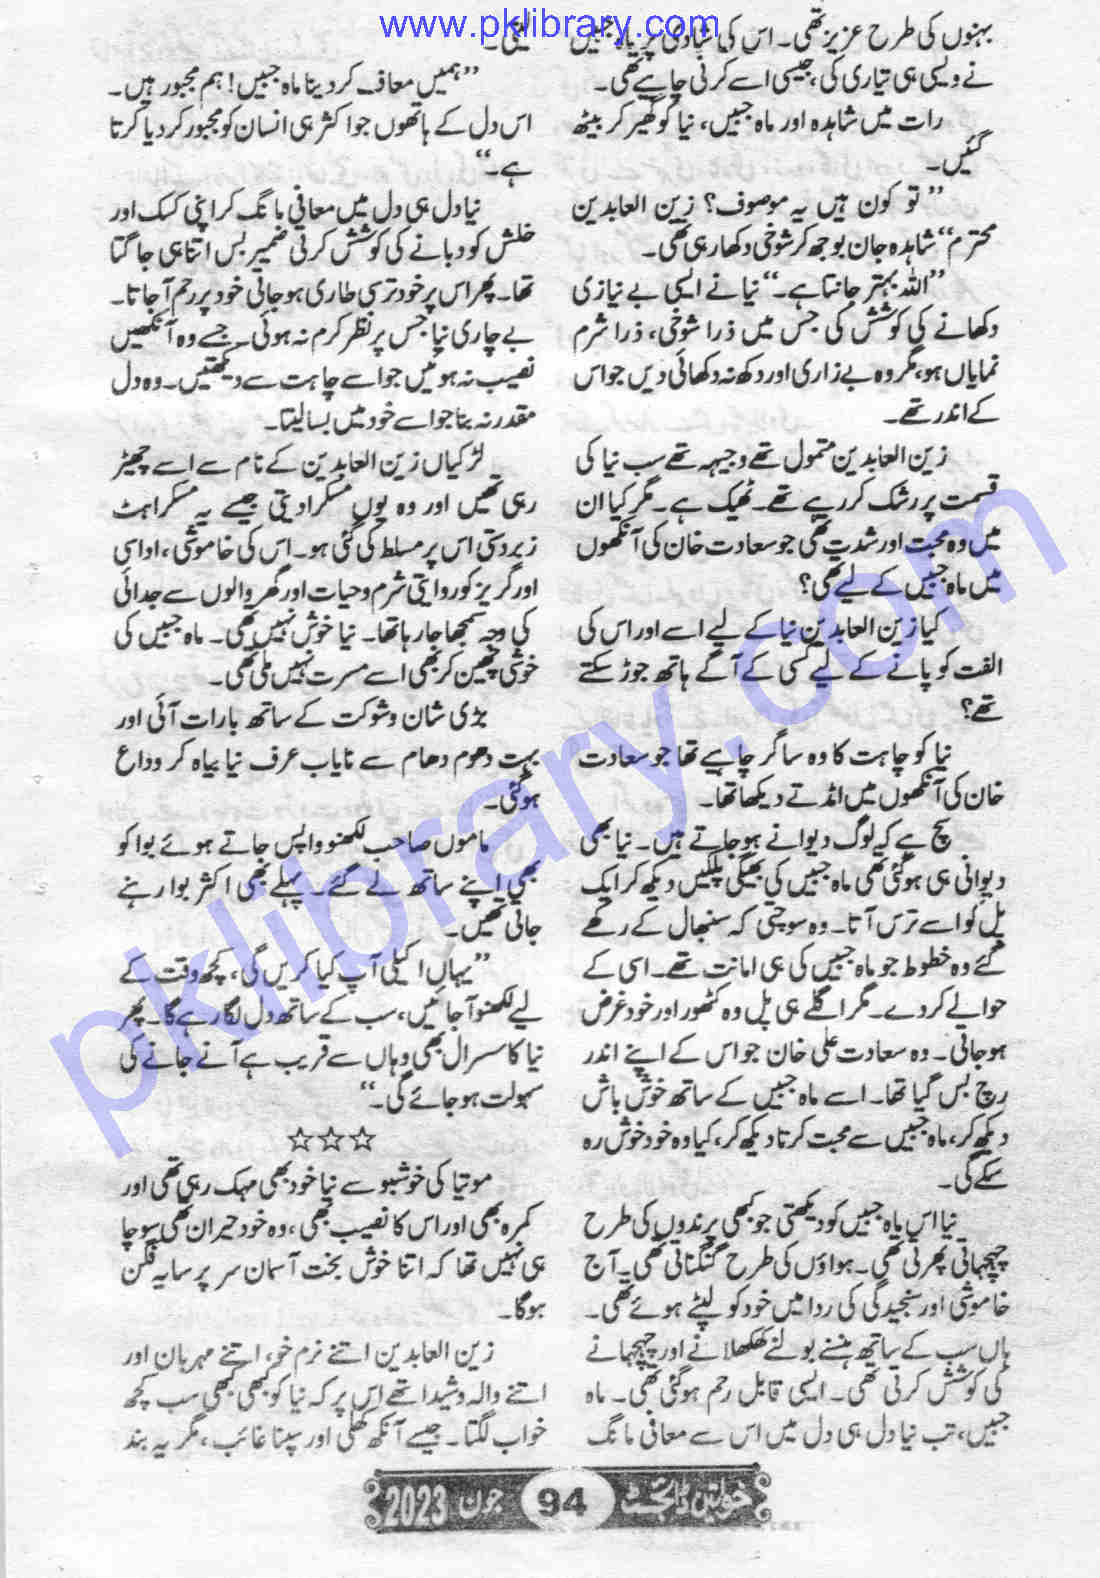 www.pklibrary.com
بہنوں کی طرح عزیز تھی۔ اس کی شادی پر ماہ جبیں
نے ویسی ہی تیاری کی، جیسی اسے کرنی چاہیے تھی۔
رات میں شاہدہ اور ماہ جبیں، نیا کو گھیر کر بیٹھ
گئیں۔
”تو کون ہیں یہ موصوف؟ زین العابدین
محترم“ شاہدہ جان بوجھ کر شوخی دکھا رہی تھی۔
”اللہ بہتر جانتا ہے۔“ نیا نے ایسی بے نیازی
دکھانے کی کوشش کی جس میں ذرا شوخی، ذرا شرم
نمایاں ہو، مگر وہ بے زاری اور دکھ نہ دکھائی دیں جو اس
کے اندر تھے۔
زین العابدین متمول تھے وجیہہ تھے سب نیا کی
قسمت پر رشک کر رہے تھے۔ ٹھیک ہے۔ مگر کیا ان
میں وہ محبت اور شدت تھی جو سعادت خان کی آنکھوں
میں ماہ جبیں کے لیے تھی؟
کیا زین العابدین نیا کے لیے اسے اور اس کی
الفت کو پانے کے لیے کسی کے آگے ہاتھ جوڑ سکتے
تھے؟
نیا کو چاہت کا وہ ساگر چاہیے تھا جو سعادت
خان کی آنکھوں میں امڈتے دیکھا تھا۔
سچ ہے کہ لوگ دیوانے ہو جاتے ہیں۔ نیا بھی
دیوانی ہی ہو گئی تھی ماہ جبیں کی بھیگی پلکیں دیکھ کر ایک
پل کو اسے ترس آتا۔ وہ سوچتی کہ سنبھال کے رکھے
گئے وہ خطوط جو ماہ جبیں کی ہی امانت تھے۔ اسی کے
حوالے کر دے۔ مگر اگلے ہی پل وہ کٹھور اور خود غرض
ہو جاتی۔ وہ سعادت علی خان جو اس کے اپنے اندر
رچ بس گیا تھا۔ اسے ماہ جبیں کے ساتھ خوش باش
دیکھ کر، ماہ جبیں سے محبت کرتا دیکھ کر، کیا وہ خود خوش رہ
سکے گی۔
نیا اس ماہ جبیں کو دیکھتی جو کبھی پرندوں کی طرح
چہچہاتی پھرتی تھی۔ ہواؤں کی طرح گنگناتی تھی۔ آج
خاموشی اور سنجیدگی کی ردا میں خود کو لپیٹے ہوئے تھی۔
ہاں سب کے ساتھ ہنسنے بولنے کھکھلانے اور چہچہانے
کی کوشش کرتی تھی۔ ایسی قابل رحم ہو گئی تھی۔ ماہ
جبیں، تب نیا دل ہی دل میں اس سے معافی مانگ
لیتی۔
”ہمیں معاف کر دینا ماہ جبیں! ہم مجبور ہیں۔
اس دل کے ہاتھوں جو اکثر ہی انسان کو مجبور کر دیا کرتا
ہے۔“
نیا دل ہی دل میں معافی مانگ کر اپنی کسک اور
خلش کو دبانے کی کوشش کرتی ضمیر بس اتنا ہی جاگتا
تھا۔ پھر اس پر خود ترسی طاری ہو جاتی خود پر رحم آ جاتا۔
بے چاری نیا جس پر نظر کرم نہ ہوئی۔ جسے وہ آنکھیں
نصیب نہ ہوئیں جو اسے چاہت سے دیکھتیں۔ وہ دل
مقدر نہ بنا جو اسے خود میں بسا لیتا۔
لڑکیاں زین العابدین کے نام سے اسے چھیڑ
رہی تھیں اور وہ یوں مسکرا دیتی جیسے یہ مسکراہٹ
زبردستی اس پر مسلط کی گئی ہو۔ اس کی خاموشی، اداسی
اور گریز کو روایتی شرم و حیات اور گھر والوں سے جدائی
کی وجہ سمجھا جا رہا تھا۔ نیا خوش نہیں تھی۔ ماہ جبیں کی
خوشی چھین کر بھی اسے مسرت نہیں ملی تھی۔
بڑی شان و شوکت کے ساتھ بارات آئی اور
بہت دھوم دھام سے نایاب عرف نیا بیاہ کر وداع
ہو گئی۔
ماموں صاحب لکھنو واپس جاتے ہوئے بوا کو
بھی اپنے ساتھ لے گئے۔ پہلے بھی اکثر بوا رہنے
جاتی تھیں۔
”یہاں اکیلی آپ کیا کریں گی، کچھ وقت کے
لیے لکھنو آ جائیں، سب کے ساتھ دل لگا رہے گا۔ پھر
نیا کا سسرال بھی وہاں سے قریب ہے آنے جانے کی
سہولت ہو جائے گی۔“
☆☆☆
موتیا کی خوشبو سے نیا خود بھی مہک رہی تھی اور
کمرہ بھی اور اس کا نصیب بھی، وہ خود حیران تھی سوچا
ہی نہیں تھا کہ اتنا خوش بخت آسمان سر پر سایہ فگن
ہو گا۔
زین العابدین اتنے نرم خو، اتنے مہربان اور
اتنے والہ و شیدا تھے اس پر کہ نیا کو کبھی کبھی سب کچھ
خواب لگتا۔ جیسے آنکھ کھلی اور سپنا غائب، مگر یہ بند
خواتین ڈائجسٹ 94 جون 2023
pklibrary.com